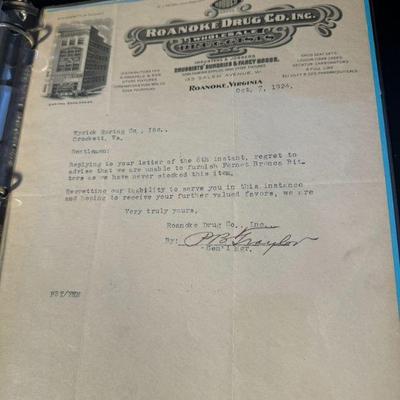 ROANOKE DRUG CO. INC.
WHOLESALE
DRUGGISTS
IMPORTERS & JOBBERS
DRUGGISTS' SUNDRIES & FANCY GOODS.
SODA FOUNTAIN SUPPLIES AND STORE FIXTURES
133 SALEM AVENUE, W.
ROANOKE, VIRGINIA
Oct, 7, 1924.
Crockett, Va.
Gentlemen:
Replying to your letter of the 6th instant, regret to
advise that we are unable to furnish Fernet Branca Bit-
ters as we have never stocked this item.
Regretting our inability to serve you in this instance
and hoping to receive your further valued favors, we are
Very truly yours,
Roanoke Drug Co., Inc.
By:
Gen'l Mgr.